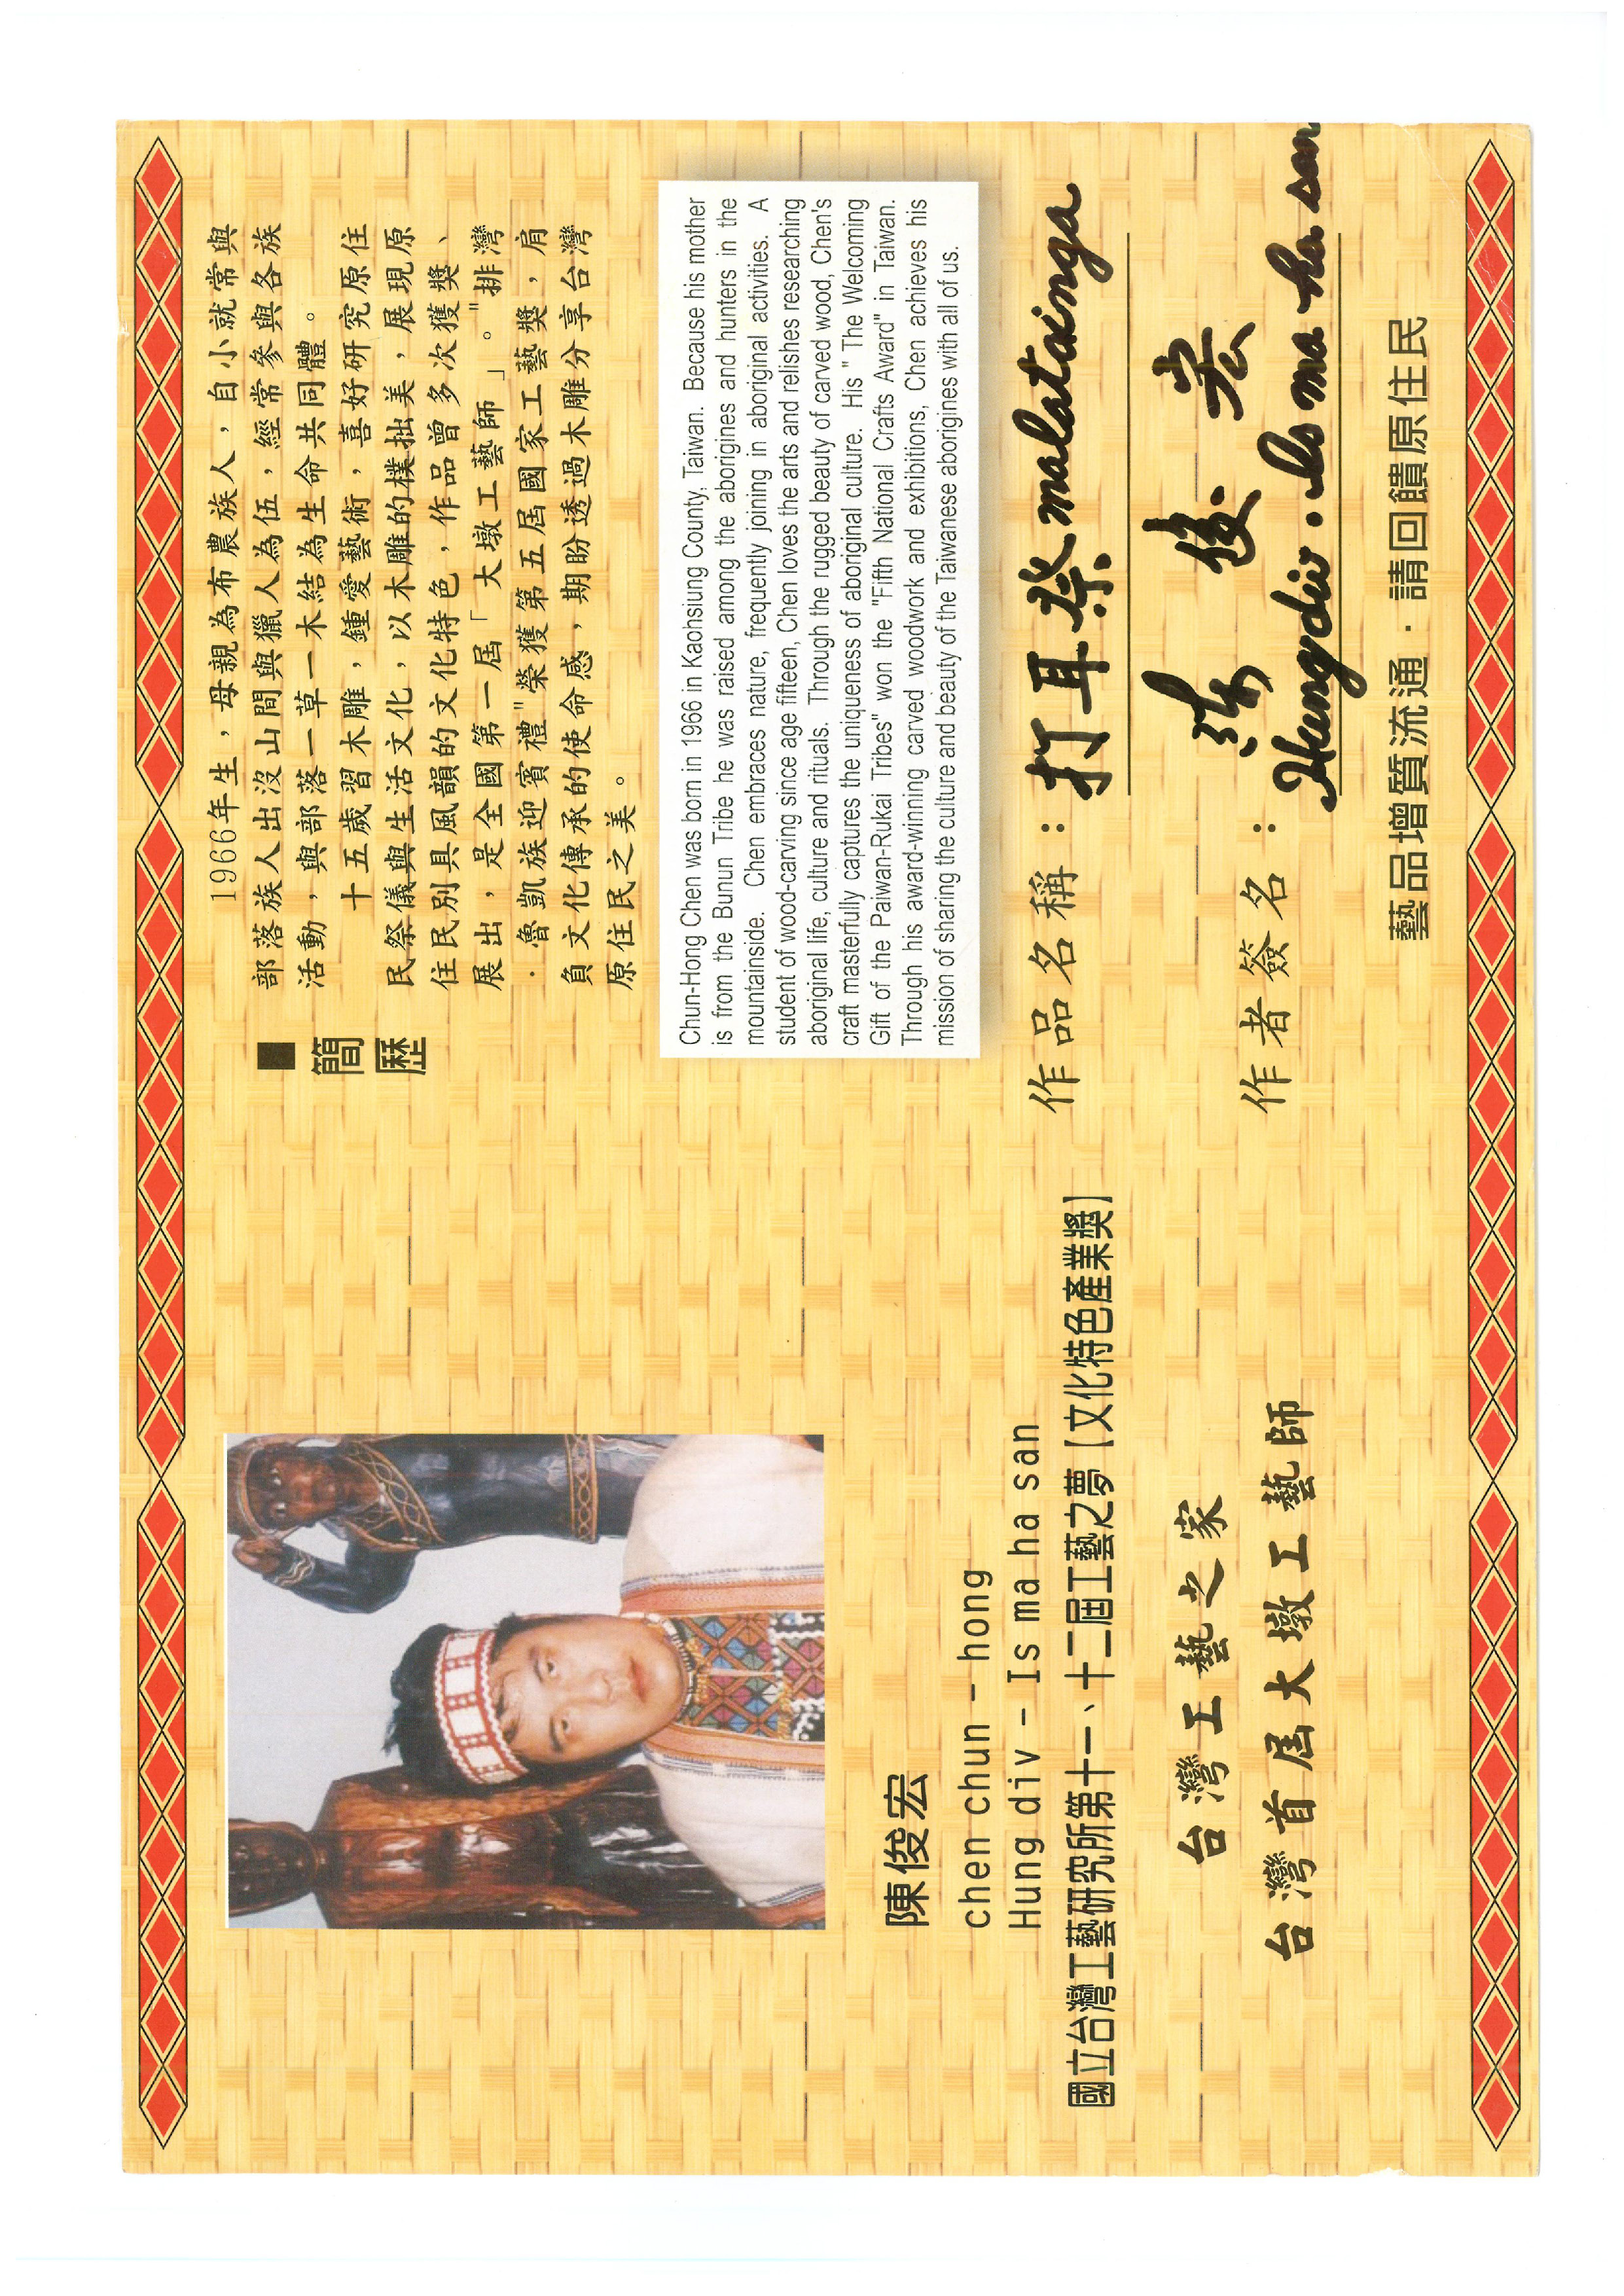 陳俊宏
chen chun - hong
Hung div - Is ma ha san
國立台灣工藝研究所第十一、十二屆工藝之夢【文化特色產業獎】
台灣工藝之家
台灣首屆大墩工藝師
■簡歷
1966年生，母親為布農族人，自小就常與
部落族人出沒山間與獵人為伍，經常參與各族
活動，與部落一草一木結為生命共同體。
十五歲習木雕，鍾愛藝術，喜好研究原住
民祭儀與生活文化，以木雕的樸拙美，展現原
住民別具風韻的文化特色，作品曾多次獲獎、
展出，是全國第一屆「大墩工藝師」。"排灣
．魯凱族迎賓禮"榮獲第五屆國家工藝獎，肩
負文化傳承的使命感，期盼透過木雕分享台灣
原住民之美。
Chun-Hong Chen was born in 1966 in Kaohsiung County, Taiwan. Because his mother
is from the Bunun Tribe he was raised among the aborigines and hunters in the
mountainside. Chen embraces nature, frequently joining in aboriginal activities. A
student of wood-carving since age fifteen, Chen loves the arts and relishes researching
aboriginal life, culture and rituals. Through the rugged beauty of carved wood, Chen's
craft masterfully captures the uniqueness of aboriginal culture. His " The Welcoming
Gift of the Paiwan-Rukai Tribes" won the "Fifth National Crafts Award" in Taiwan.
Through his award-winning carved woodwork and exhibitions, Chen achieves his
mission of sharing the culture and beauty of the Taiwanese aborigines with all of us.
作品名稱：打耳祭 malatainga
陳俊宏
作者簽名：Hungdiv. Is ma ha san
藝品增質流通．請回饋原住民